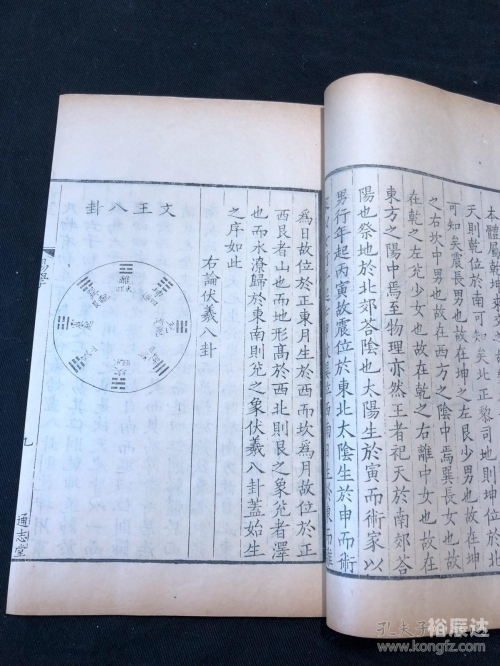 天則乾位於南可知矣北正黎司地則坤位於北
可知矣震長男也故在坤之左艮少男也故在坤
之右坎中男也故在西方之陰中焉巽長女也故
在乾之左兊少女也故在乾之右離中女也故在
東方之陽中焉至物理亦然王者祀天於南郊荅
陽也祭地於北郊荅陰也太陽生於寅而術家以
男行年起丙寅故震位於東北太陰生於申而術
為日故位於正東月生於西而坎為月故位於正
西艮者山也而地形髙於西北則艮之象兊者澤
也而水潦歸於東南則兊之象伏羲八卦蓋始生
之序如此
右論伏羲八卦
文王八卦
離
九
通志堂
裕辰达
www.kongfz.com